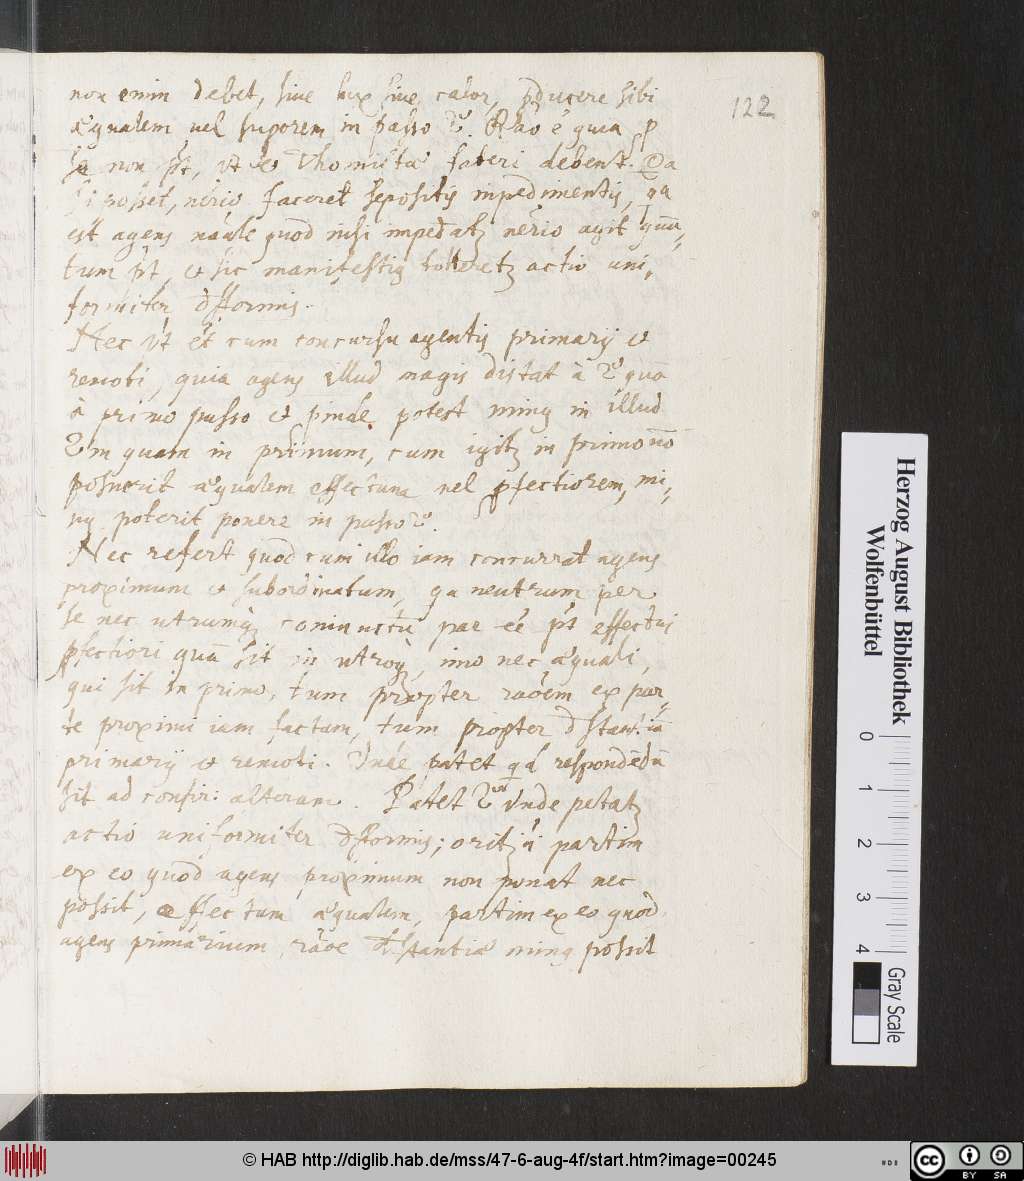 non enim debet, sive lux sive calor, pducere sibi
æqualem vel supiorem in passo 2º. Rão ē quia p
se non pt, vt et Thomistæ fateri debent. Qa
si posset, nērio faceret sepositis impedimentis, qa
est agens naāle quod nisi impediatz nērio agit quā-
tum pt, et sic manifestiq tolleretz actio uni-
formiter dfformis.
Nec vt ēt cum concursu agentis primarij et
remoti, quia agens illud magis distat à 2º quā
à primo passo et pinde potest minq in illud
2m quam in primum, cum igitz in primo nō
posuerit æqualem effectum vel pfectiorem, mi-
nq poterit ponere in passo 2º.
Nec refert quod cum illo iam concurrat agens
proximum et subordinatum, qa neutrum per
se nec utrumqz coniunctū pāe ēe pt effectui
pfectiori quā sit in utroqz, imo nec æquali,
qui sit in primo, tum propter raōem ex par-
te proximi iam factam, tum propter dstantiā
primarij et remoti. Inde patet qd respondēdū
sit ad confir: alteram. Patet 2º unde petatz
actio uniformiter dfformis; oritz .n. partim
ex eo quod agens proximum non ponat nec
possit, effectum æqualem, partim ex eo quod
agens primarium, raōe dstantiæ minq possit
122
Herzog August Bibliothek
Wolfenbüttel
0 1 2 3 4
Gray Scale
© HAB http://diglib.hab.de/mss/47-6-aug-4f/start.htm?image=00245
cc BY SA